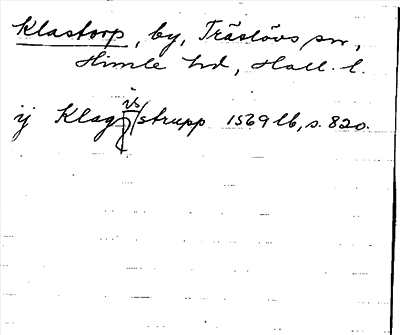 Klastorp, by, Träslövs sn,
Himle hd, Hall. l.
ij Klag strupp 1569 lb, s. 820.